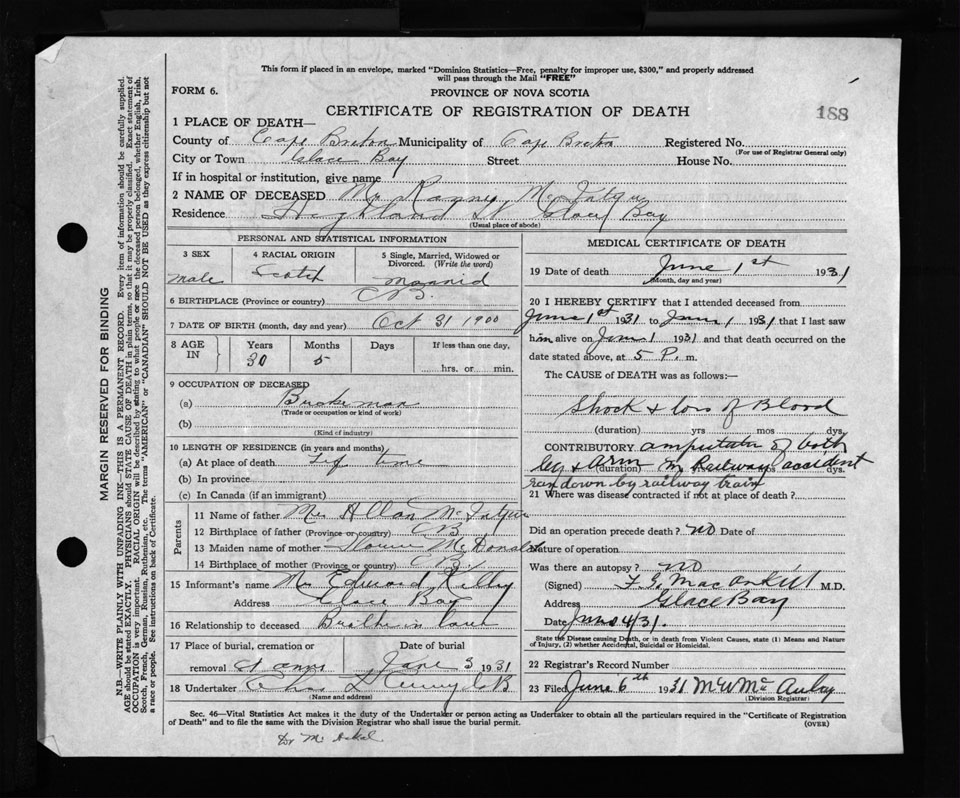 This form if placed in an envelope, marked "Dominion Statistics—Free, penalty for improper use, $300," and properly addressed
will pass through the Mail "FREE"
FORM 6.
PROVINCE OF NOVA SCOTIA
CERTIFICATE OF REGISTRATION OF DEATH
188
1 PLACE OF DEATH—
County of Cape Breton Municipality of Cape Breton Registered No.
(For use of Registrar General only)
City or Town Glace Bay Street House No.
If in hospital or institution, give name
2 NAME OF DECEASED Mr. Ranny McIntyre
Residence Highland St Glace Bay
(Usual place of abode)
PERSONAL AND STATISTICAL INFORMATION
3 SEX
Male
4 RACIAL ORIGIN
Scotch
5 Single, Married, Widowed or
Divorced. (Write the word)
Married
6 BIRTHPLACE (Province or country) C B.
7 DATE OF BIRTH (month, day and year) Oct 31 1900
8 AGE IN
Years Months Days If less than one day,
30 5
hrs. or min.
9 OCCUPATION OF DECEASED
(a) Brakeman
(Trade or occupation or kind of work)
(b)
(Kind of industry)
10 LENGTH OF RESIDENCE (in years and months)
(a) At place of death Life time
(b) In province
(c) In Canada (if an immigrant)
Parents
11 Name of father Mr Allan McIntyre
12 Birthplace of father (Province or country) CB
13 Maiden name of mother McDonald
14 Birthplace of mother (Province or country) CB
15 Informant's name Mr Edward Kelly
Address Glace Bay
16 Relationship to deceased Brother in law
17 Place of burial, cremation or
removal St Anns
Date of burial
June 3 1931
18 Undertaker CB
(Name and address)
MEDICAL CERTIFICATE OF DEATH
19 Date of death June 1st 1931
(Month, day and year)
20 I HEREBY CERTIFY that I attended deceased from
June 1st 1931 to June 1 1931 that I last saw
him alive on June 1 1931 and that death occurred on the
date stated above, at 5 P. m.
The CAUSE OF DEATH was as follows:—
Shock & loss of Blood
(duration) yrs mos dys.
CONTRIBUTORY amputation of both
leg & arm in Railway accident
(duration) dys.
ran down by railway train
21 Where was disease contracted if not at place of death?
Did an operation precede death? no Date of
Nature of operation
Was there an autopsy? no
(Signed) M.D.
Address Glace Bay
Date June 4/31.
State the Disease causing Death, or in death from Violent Causes, state (1) Means and Nature
of Injury, (2) whether Accidental, Suicidal or Homicidal.
22 Registrar's Record Number
23 Filed June 6th 1931
(Division Registrar)
Sec. 46—Vital Statistics Act makes it the duty of the Undertaker or person acting as Undertaker to obtain all the particulars required in the "Certificate of Registration
of Death" and to file the same with the Division Registrar who shall issue the burial permit.
(OVER)
MARGIN RESERVED FOR BINDING
N.B.—WRITE PLAINLY WITH UNFADING INK—THIS IS A PERMANENT RECORD. Every item of information should be carefully supplied.
AGE should be stated EXACTLY. PHYSICIANS should STATE CAUSE OF DEATH in plain terms, so that it may be properly classified. Exact statement of
OCCUPATION is very important. RACIAL ORIGIN will be described by stating to what people or race the deceased person belonged, whether English, Irish,
Scotch, French, German, Russian, Ruthenian, etc. The terms "AMERICAN" or "CANADIAN" SHOULD NOT BE USED as they express citizenship but not
a race or people. See instructions on back of Certificate.